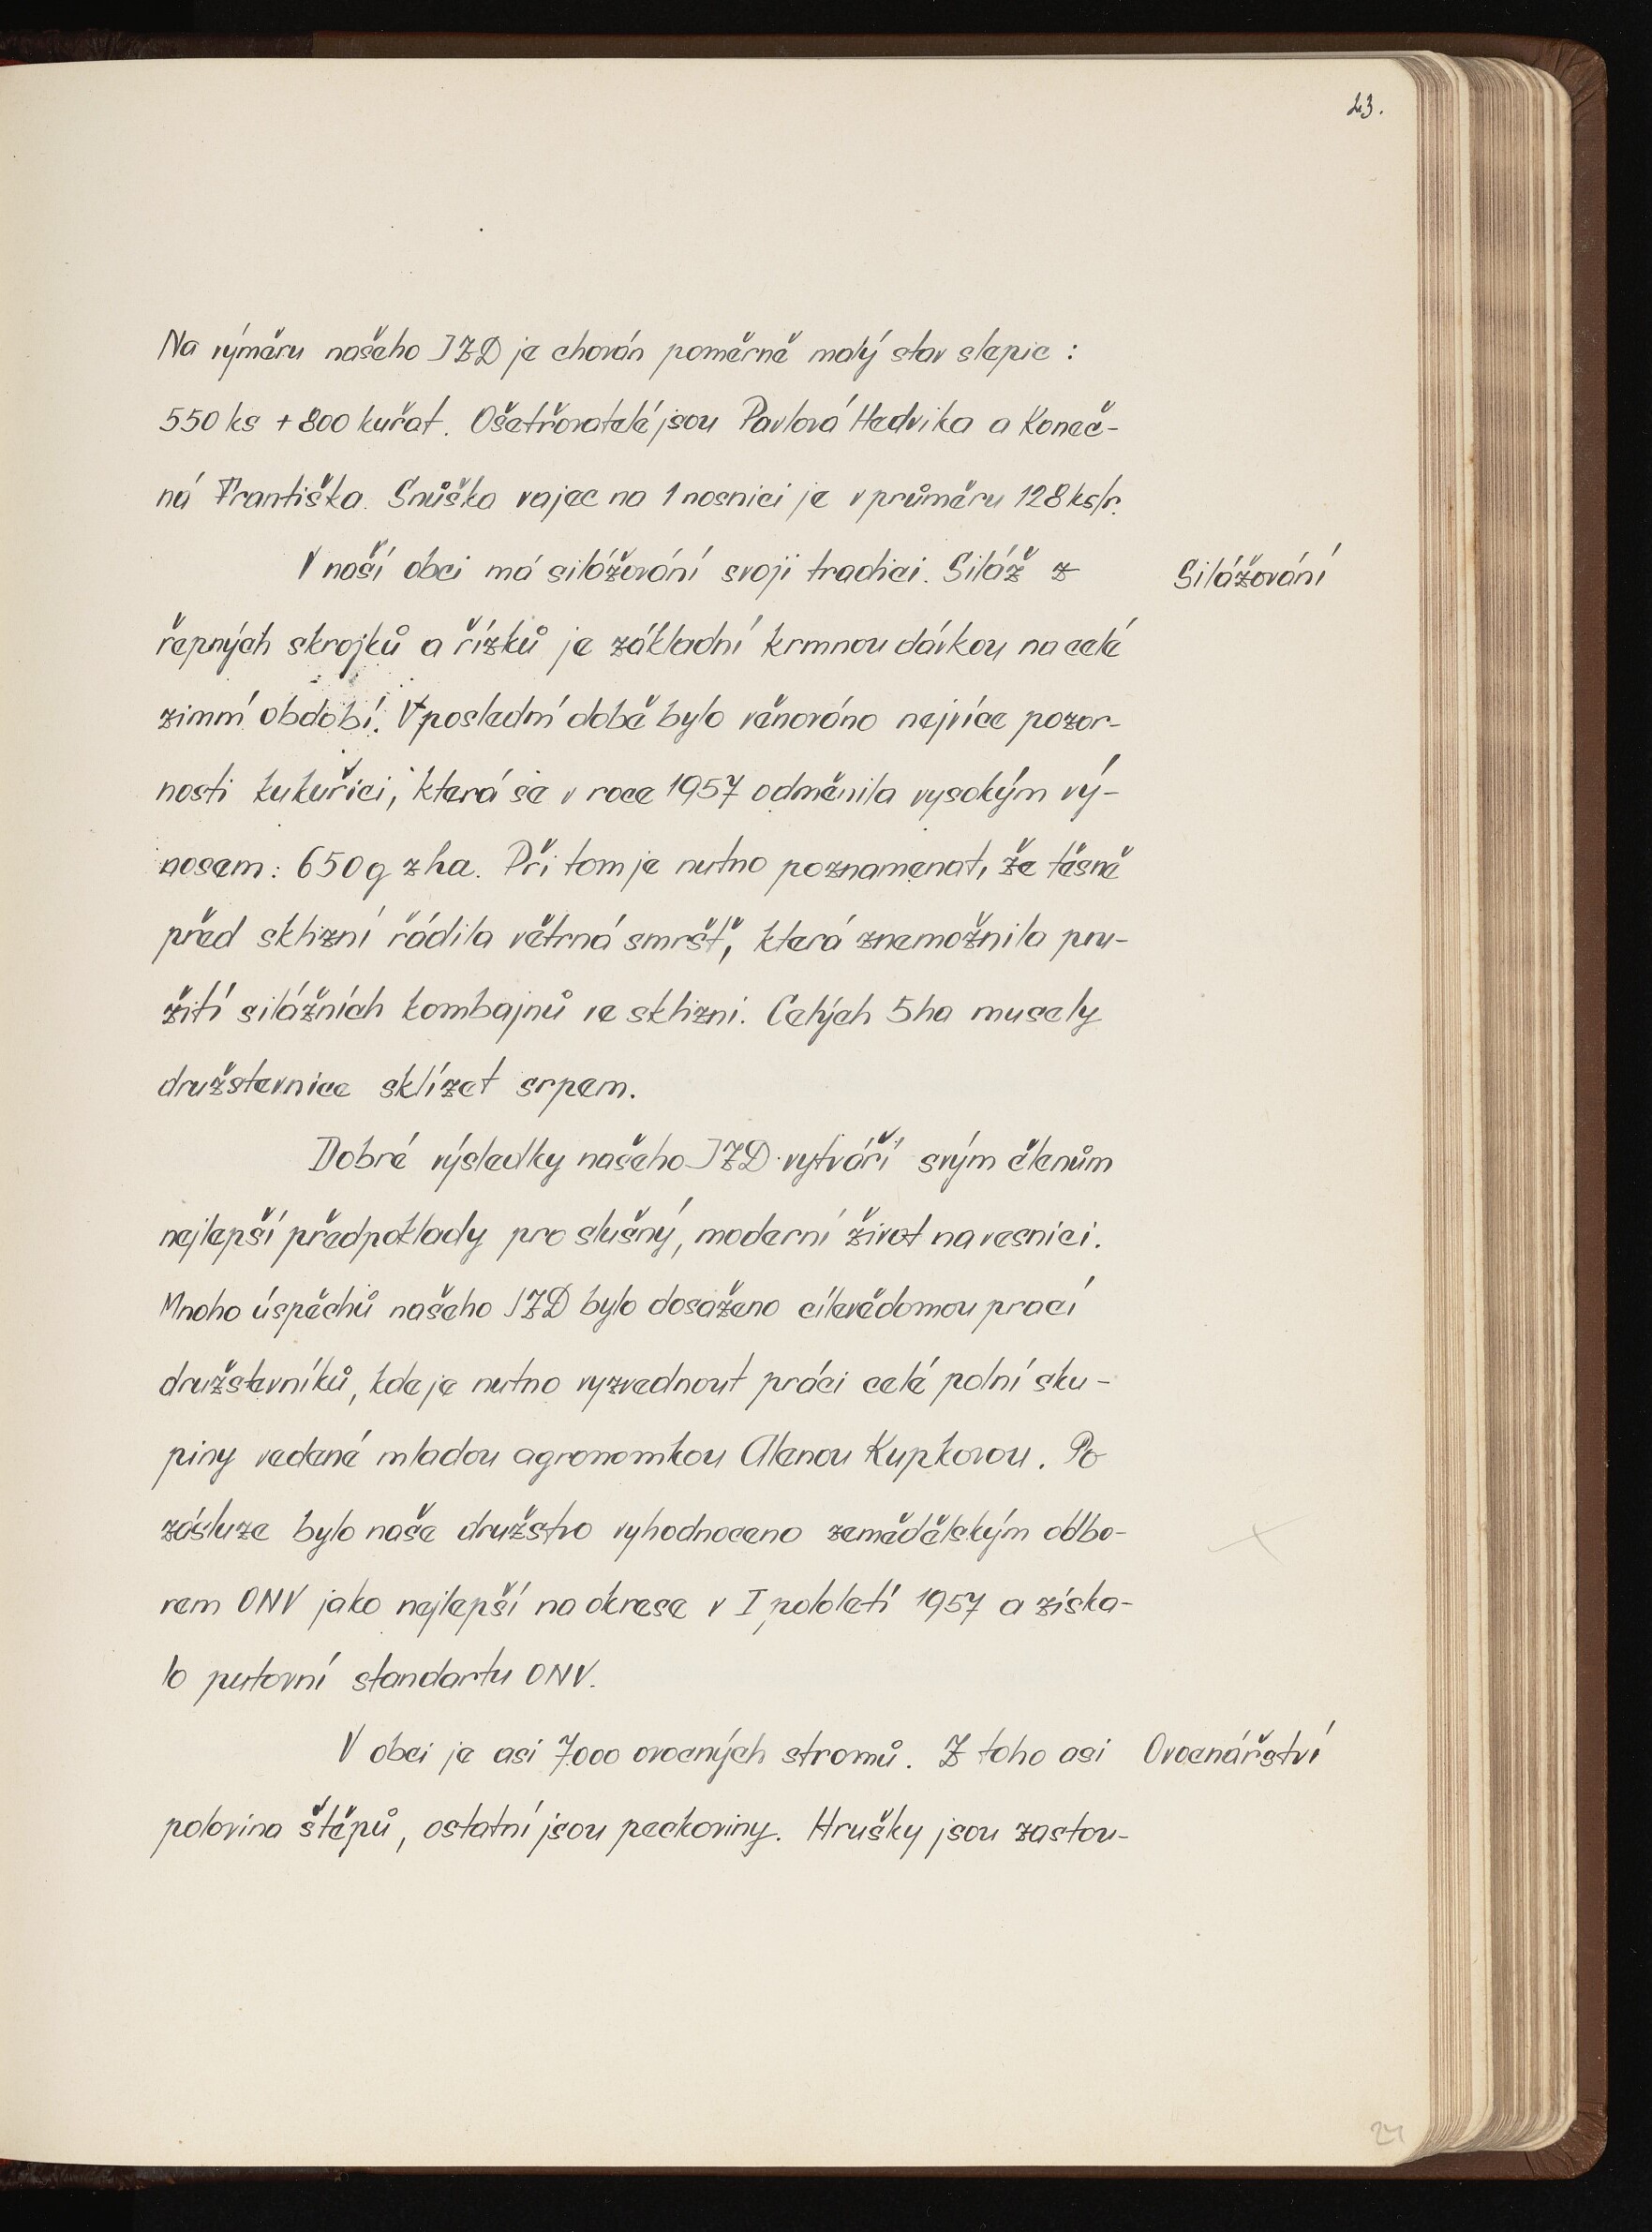 23.
Na výměru našeho JZD je chován poměrně malý stav slepic :
550 ks + 800 kuřat. Ošetřovatelé jsou Pavlová Hedvika a Koneč-
ná Františka. Snůška vajec na 1 nosnici je v průměru 128 ks/r.
V naší obci má silážování svoji tradici. Siláž z
Silážování
řepných skrojků a řízků je základní krmnou dávkou na celé
zimní období. V poslední době bylo věnováno nejvíce pozor-
nosti kukuřici, která se v roce 1957 odměnila vysokým vý-
nosem: 650 q z ha. Při tom je nutno poznamenat, že těsně
před sklizní řádila větrná smršť, která znemožnila pou-
žití silážních kombajnů ve sklizni. Celých 5 ha musely
družstevnice sklízet srpem.
Dobré výsledky našeho JZD vytváří svým členům
nejlepší předpoklady pro slušný, moderní život na vesnici.
Mnoho úspěchů našeho JZD bylo dosaženo cílevědomou prací
družstevníků, kde je nutno vyzvednout práci celé polní sku-
piny vedené mladou agronomkou Alenou Kupkovou. Po
zásluze bylo naše družstvo vyhodnoceno zemědělským odbo-
rem ONV jako nejlepší na okrese v I. pololetí 1957 a získa-
lo putovní standartu ONV.
V obci je asi 7.000 ovocných stromů. Z toho asi
Ovocnářství
polovina štěpů, ostatní jsou peckoviny. Hrušky jsou zastou-
24